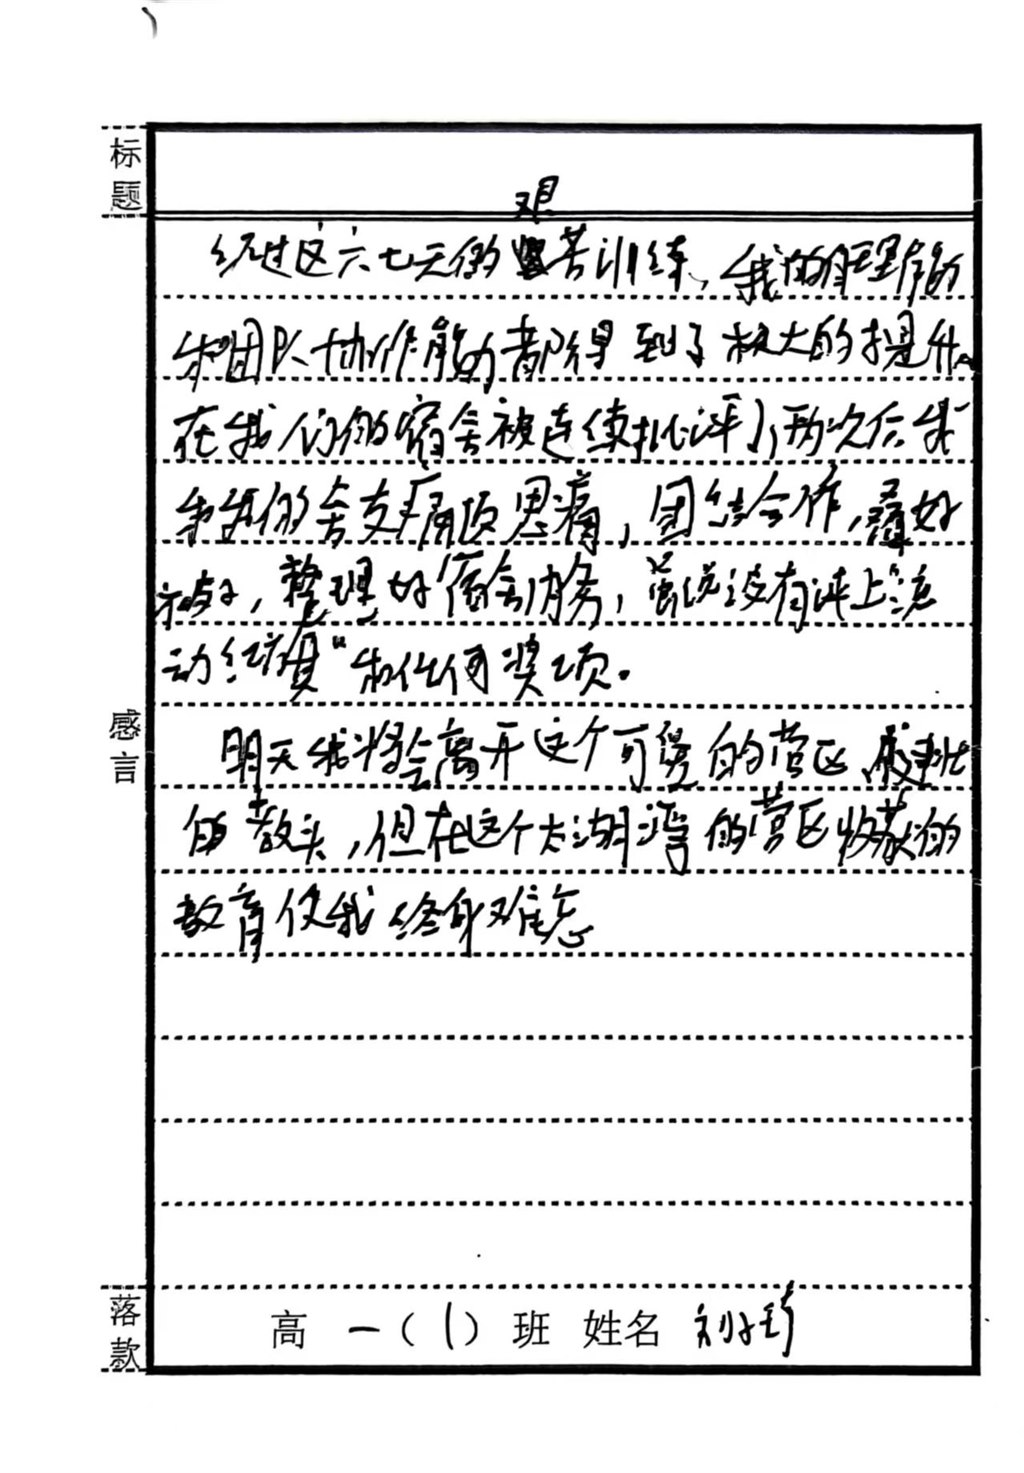 标题
艰
经过这六七天的苦训练，我的自理能力
和团队协作能力都得到了极大的提升。
在我们的宿舍被连续批评了两次后我
和我的舍友痛顶思痛，团结合作，叠好
被子，整理好宿舍内务，虽说没有评上流
动红旗"和任何奖项。
感言
明天我将会离开这个可爱的营区
的教头，但在这个太湖湾的营区收获的
教育使我终身难忘
落款
高 一（1）班 姓名 刘子琦